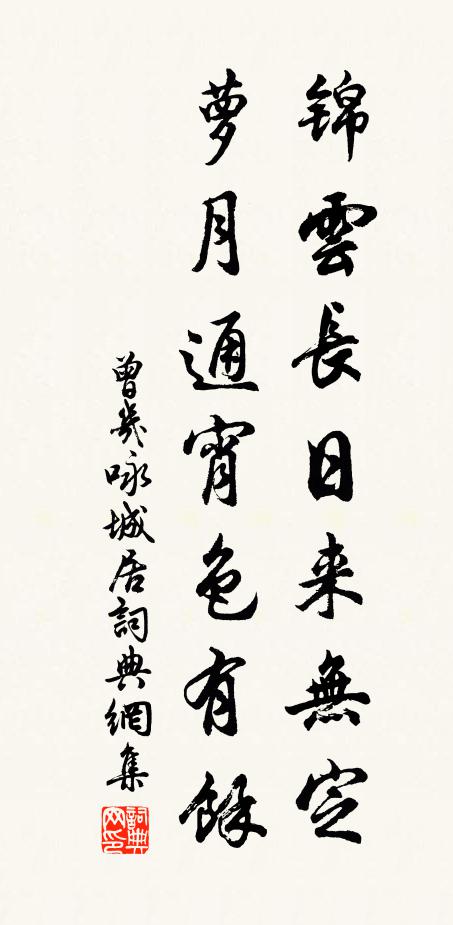 锦雲長日来無定
夢月通宵色有餘
曾幾咏城居詞典網集
詞典网印